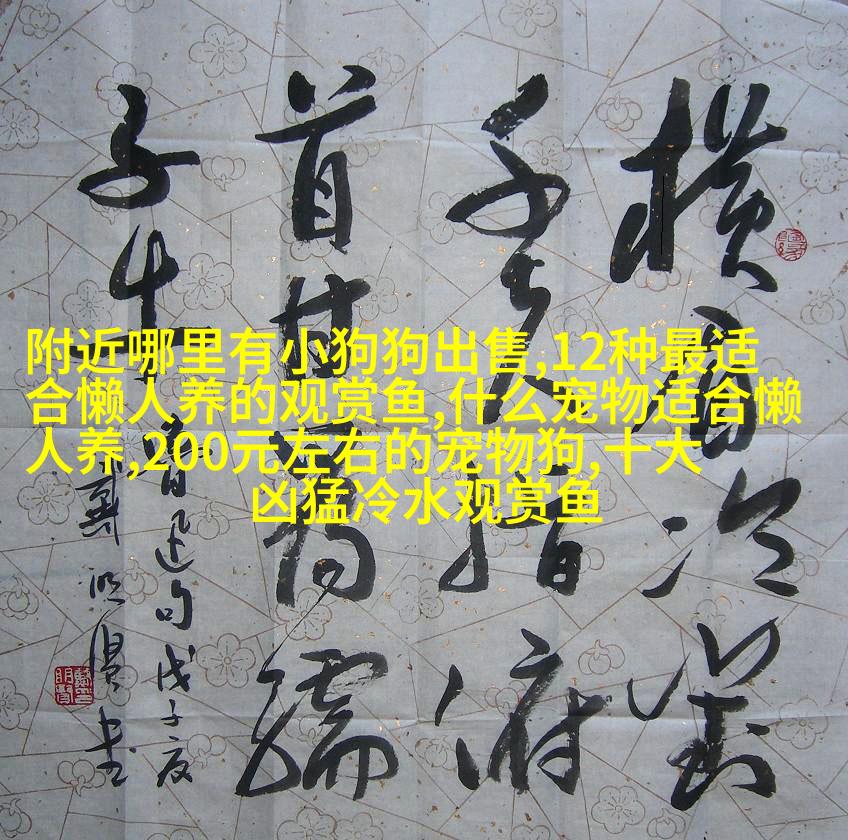 附近哪里有小狗狗出售,12种最适
合懒人养的观赏鱼,什么宠物适合懒
人养,200元左右的宠物狗,十大
凶猛冷水观赏鱼
横眉冷對
千夫指俯
首甘為孺
子牛
魯迅句戊子夏